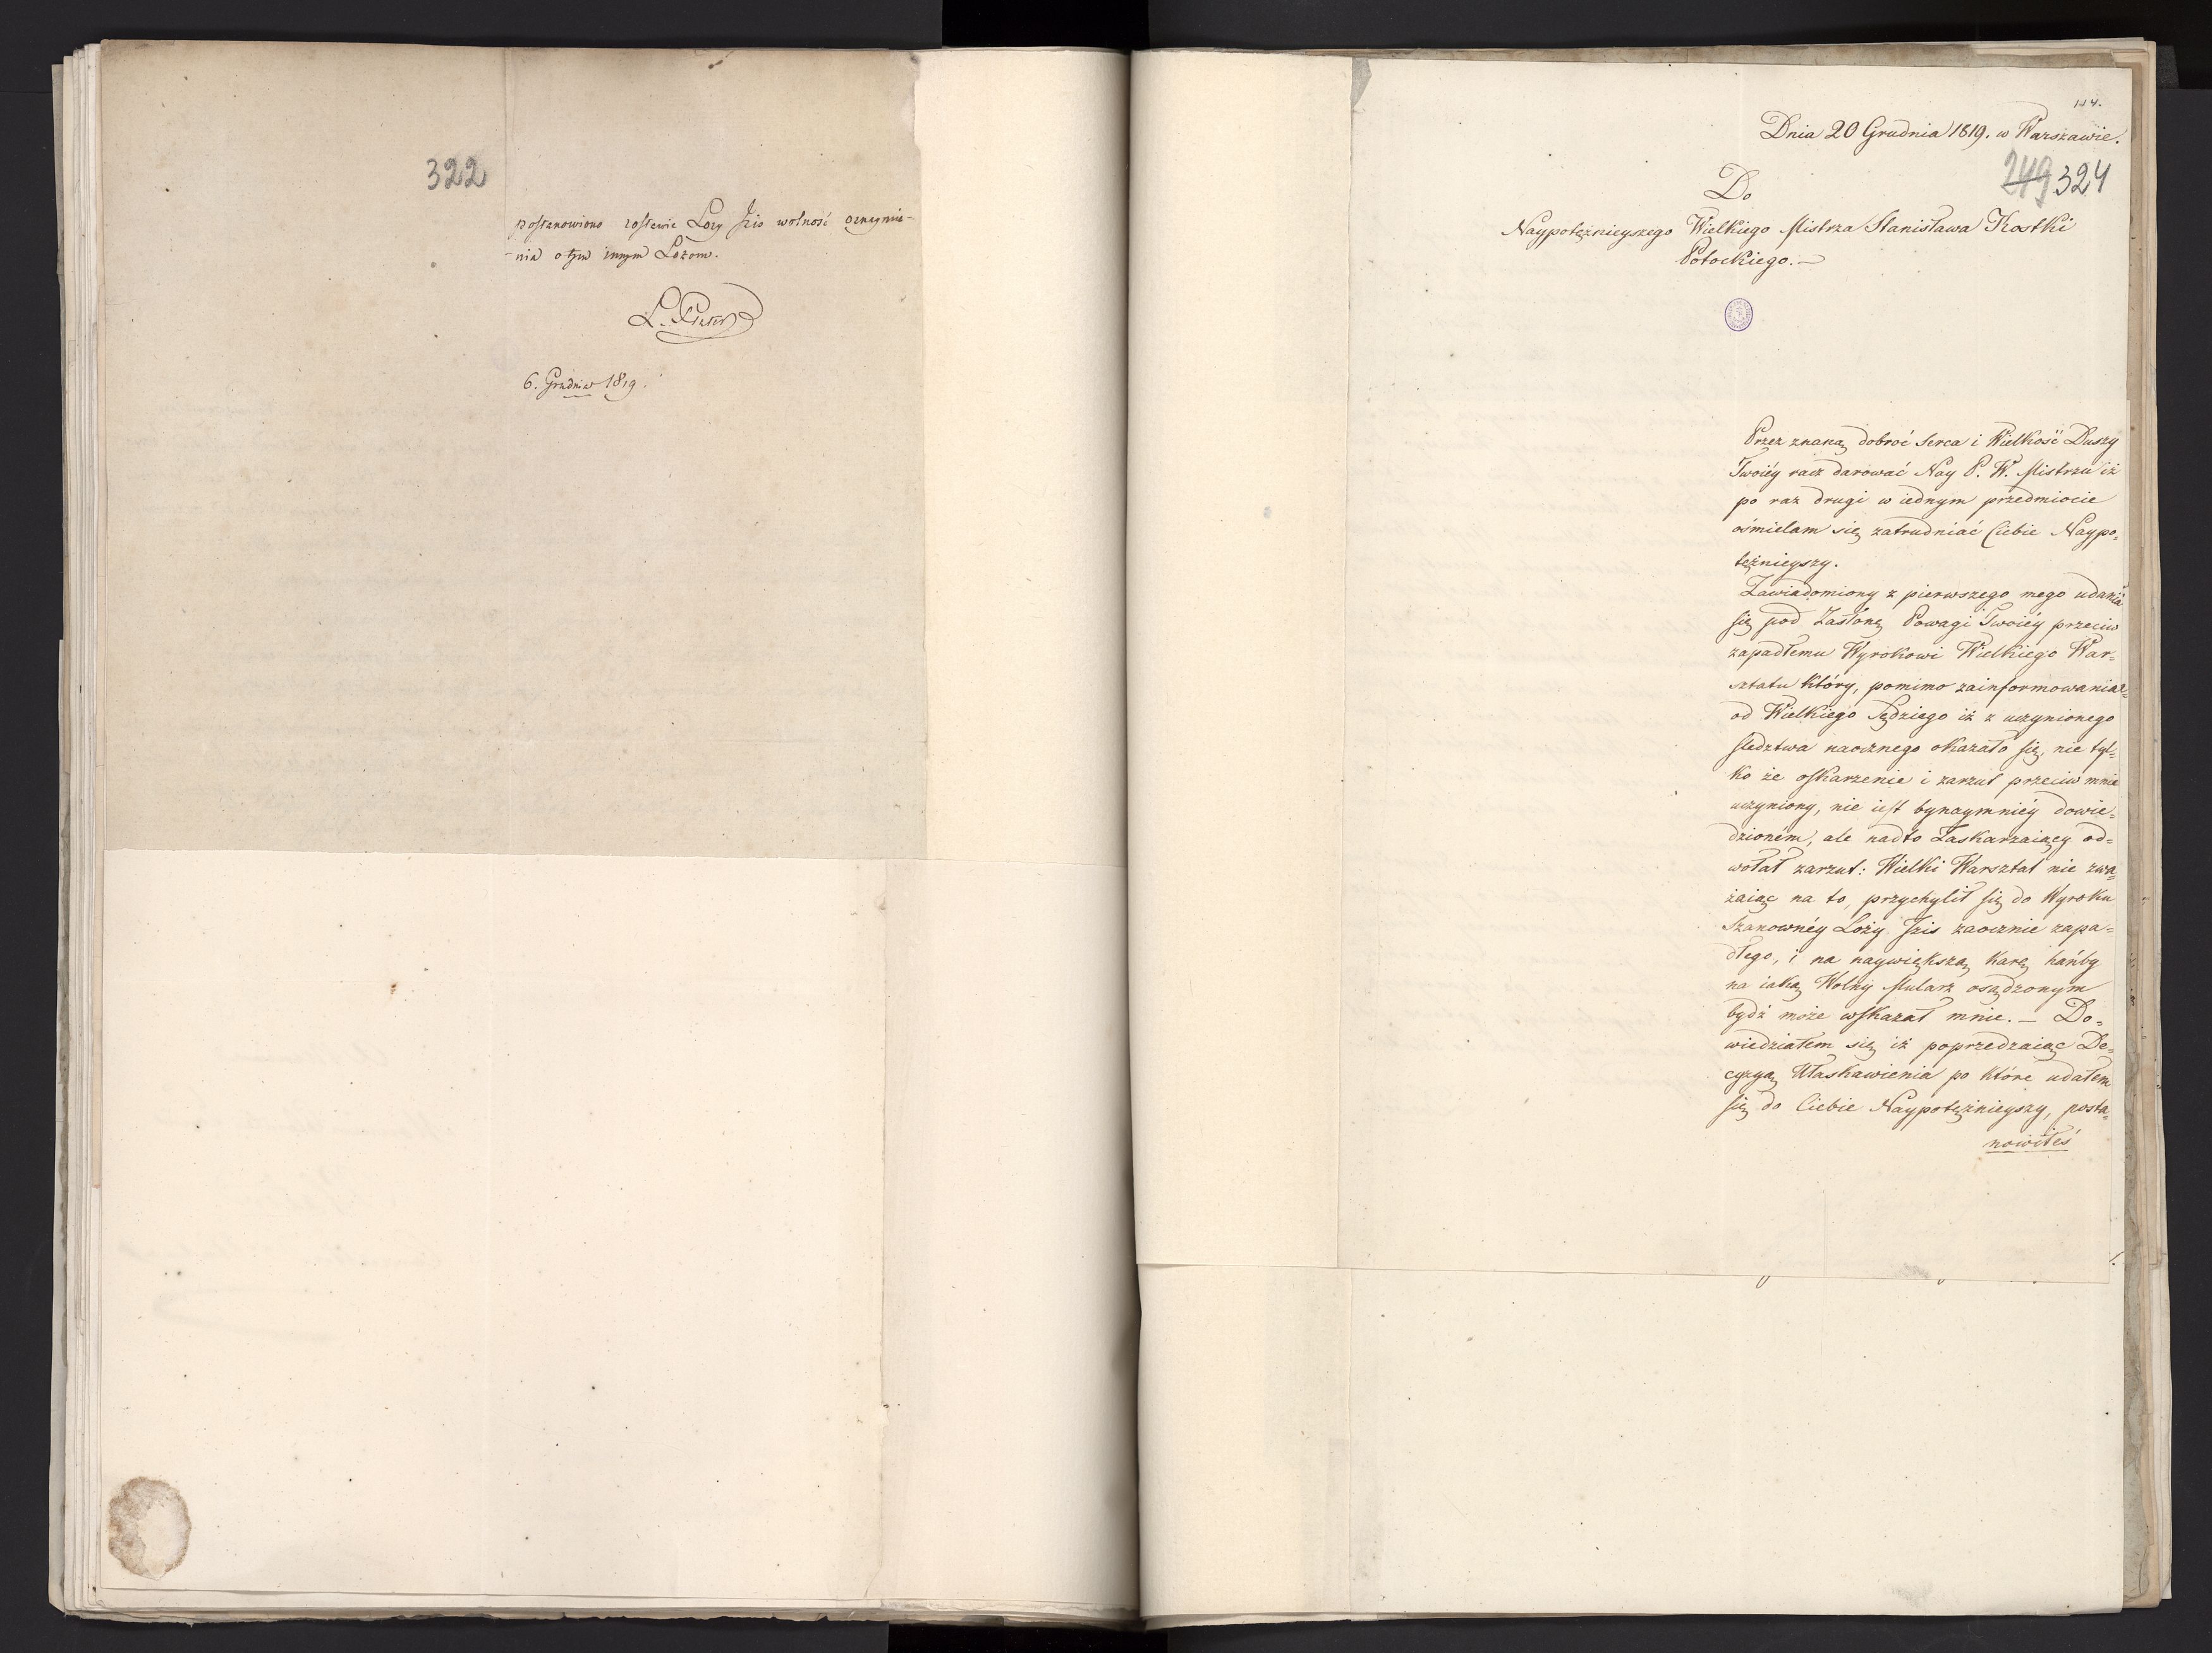 322
postanowiono zostawić Loży Izis wolność oznaymie-
-nia o tym innym Lożom.
L. Plater
6. Grudnia 1819.
114.
Dnia 20 Grudnia 1819. w Warszawie.
249 324
Do
Naypotężnieyszego Wielkiego Mistrza Stanisława Kostki
Potockiego.—
Przez znaną dobroć Serca i Wielkość Duszy
Twoiéy racz darować Nay P. W. Mistrzu iż
po raz drugi w iednym przedmiocie
ośmielam się zatrudniać Ciebie Naypo=
tężnieyszy.
Zawiadomiony z pierwszego mego udania
się pod Zasłonę Powagi Twoiéy przeciw
zapadłemu Wyrokowi Wielkiego War=
sztatu który, pomimo zainformowania
od Wielkiego Sędziego iż z uczynionego
śledztwa naocznego okazało się, nie tyl=
ko że oskarzenie i zarzut przeciw mnie
uczyniony, nie iest bynaymniéy dowie=
dzioném, ale nadto Zaskarzaiący od=
wołał zarzut: Wielki Warsztat nie zwa=
żaiąc na to, przychylił się do Wyroku
Szanownéy Loży Izis zaocznie zapa=
dłego, i na naywiększą karę hańby
na iaką Wolny Mularz osądzonym
bydź może wskazał mnie.— Do=
wiedziałem się iż poprzedzaiąc De=
cyzyą Ułaskawienia po które udałem
się do Ciebie Naypotężnieyszy, posta=
nowiłeś